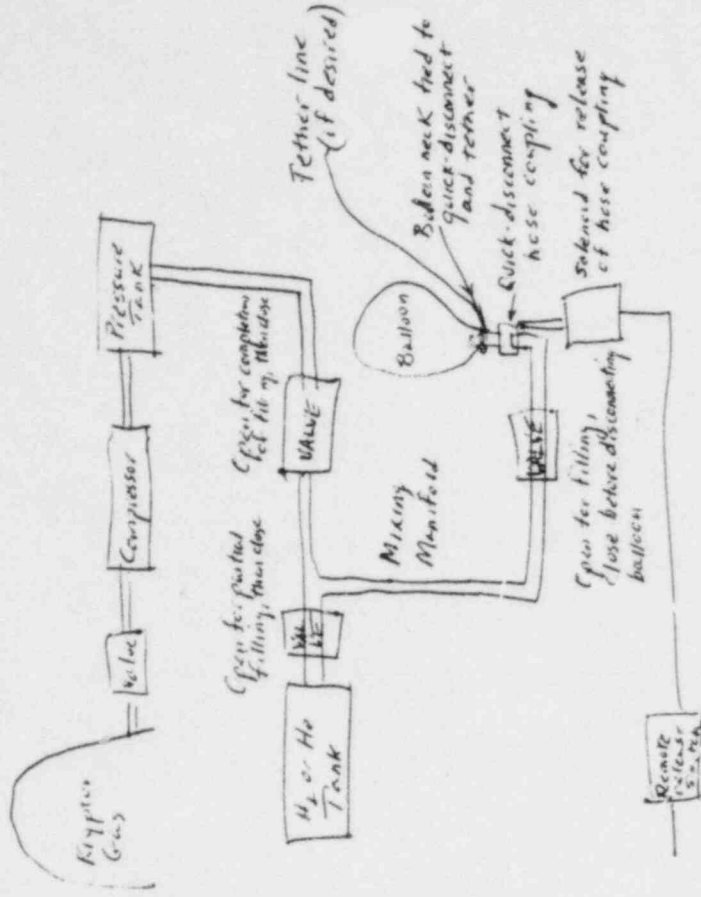 Krypton
Gas
Valve
Compressor
Pressure
Tank
Open for partial
filling, then close
Open for completion
of filling, then close
H2 or He
Tank
VAL
VE
VALVE
Mixing
Manifold
Balloon
Tether line
(if desired)
Balloon neck tied to
quick-disconnect
and tether
Quick-disconnect
hose coupling
Solenoid for release
of hose coupling
VALVE
Open for filling,
close before disconnecting
balloon
Remote
release
switch